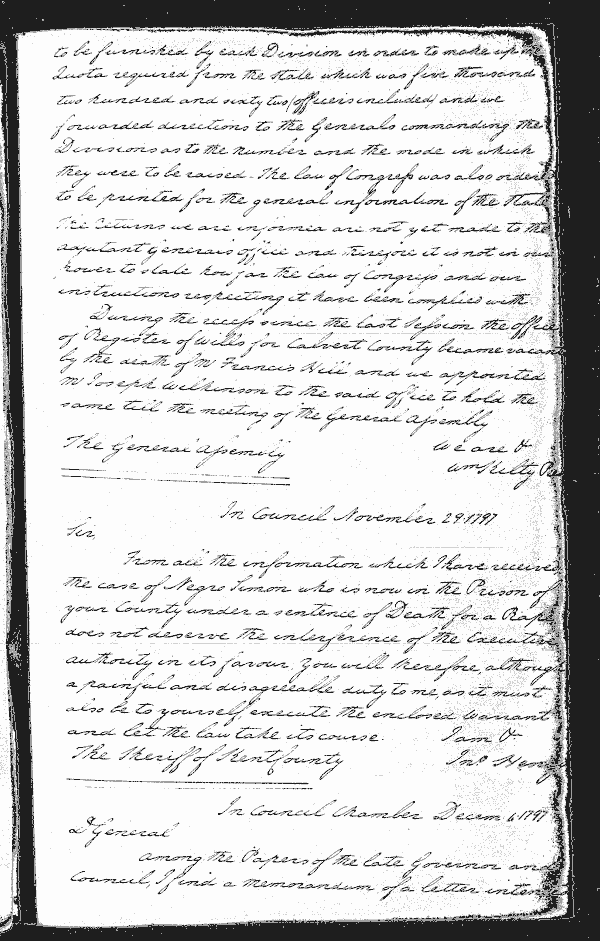 to be furnished by each Division in order to make up the
Quota required from the State which was five thousand
two hundred and sixty two (officers included) and we
forwarded directions to the Generals commanding the
Divisions as to the number and the mode in which
they were to be raised. The law of Congress was also ordered
to be printed for the general information of the State
The returns we are informed are not yet made to the
adjutant Generals office and therefore it is not in our
power to state how far the law of Congress and our
instructions respecting it have been complied with.
During the recess since the last Session the office
of Register of Wills for Calvert County became vacant
by the death of Mr Francis Hill and we appointed
Mr Joseph Wilkinson to the said office to hold the
same till the meeting of the General Assembly
We are &
The General Assembly
Wm Kilty
In Council November 29. 1797
Sir,
From all the information which I have received,
the case of Negro Simon who is now in the Prison of
your County under a sentence of Death for a Rape
does not deserve the interference of the Executive
authority in its favour, you will therefore, although
a painful and disagreeable duty to me, as it must
also be to yourself execute the enclosed Warrant
and let the law take its course. I am &
The Sheriff of Kent County Jno Henry
In Council Chamber Decem 6 1797
Dr General
among the Papers of the late Governor and
Council, I find a memorandum of a letter